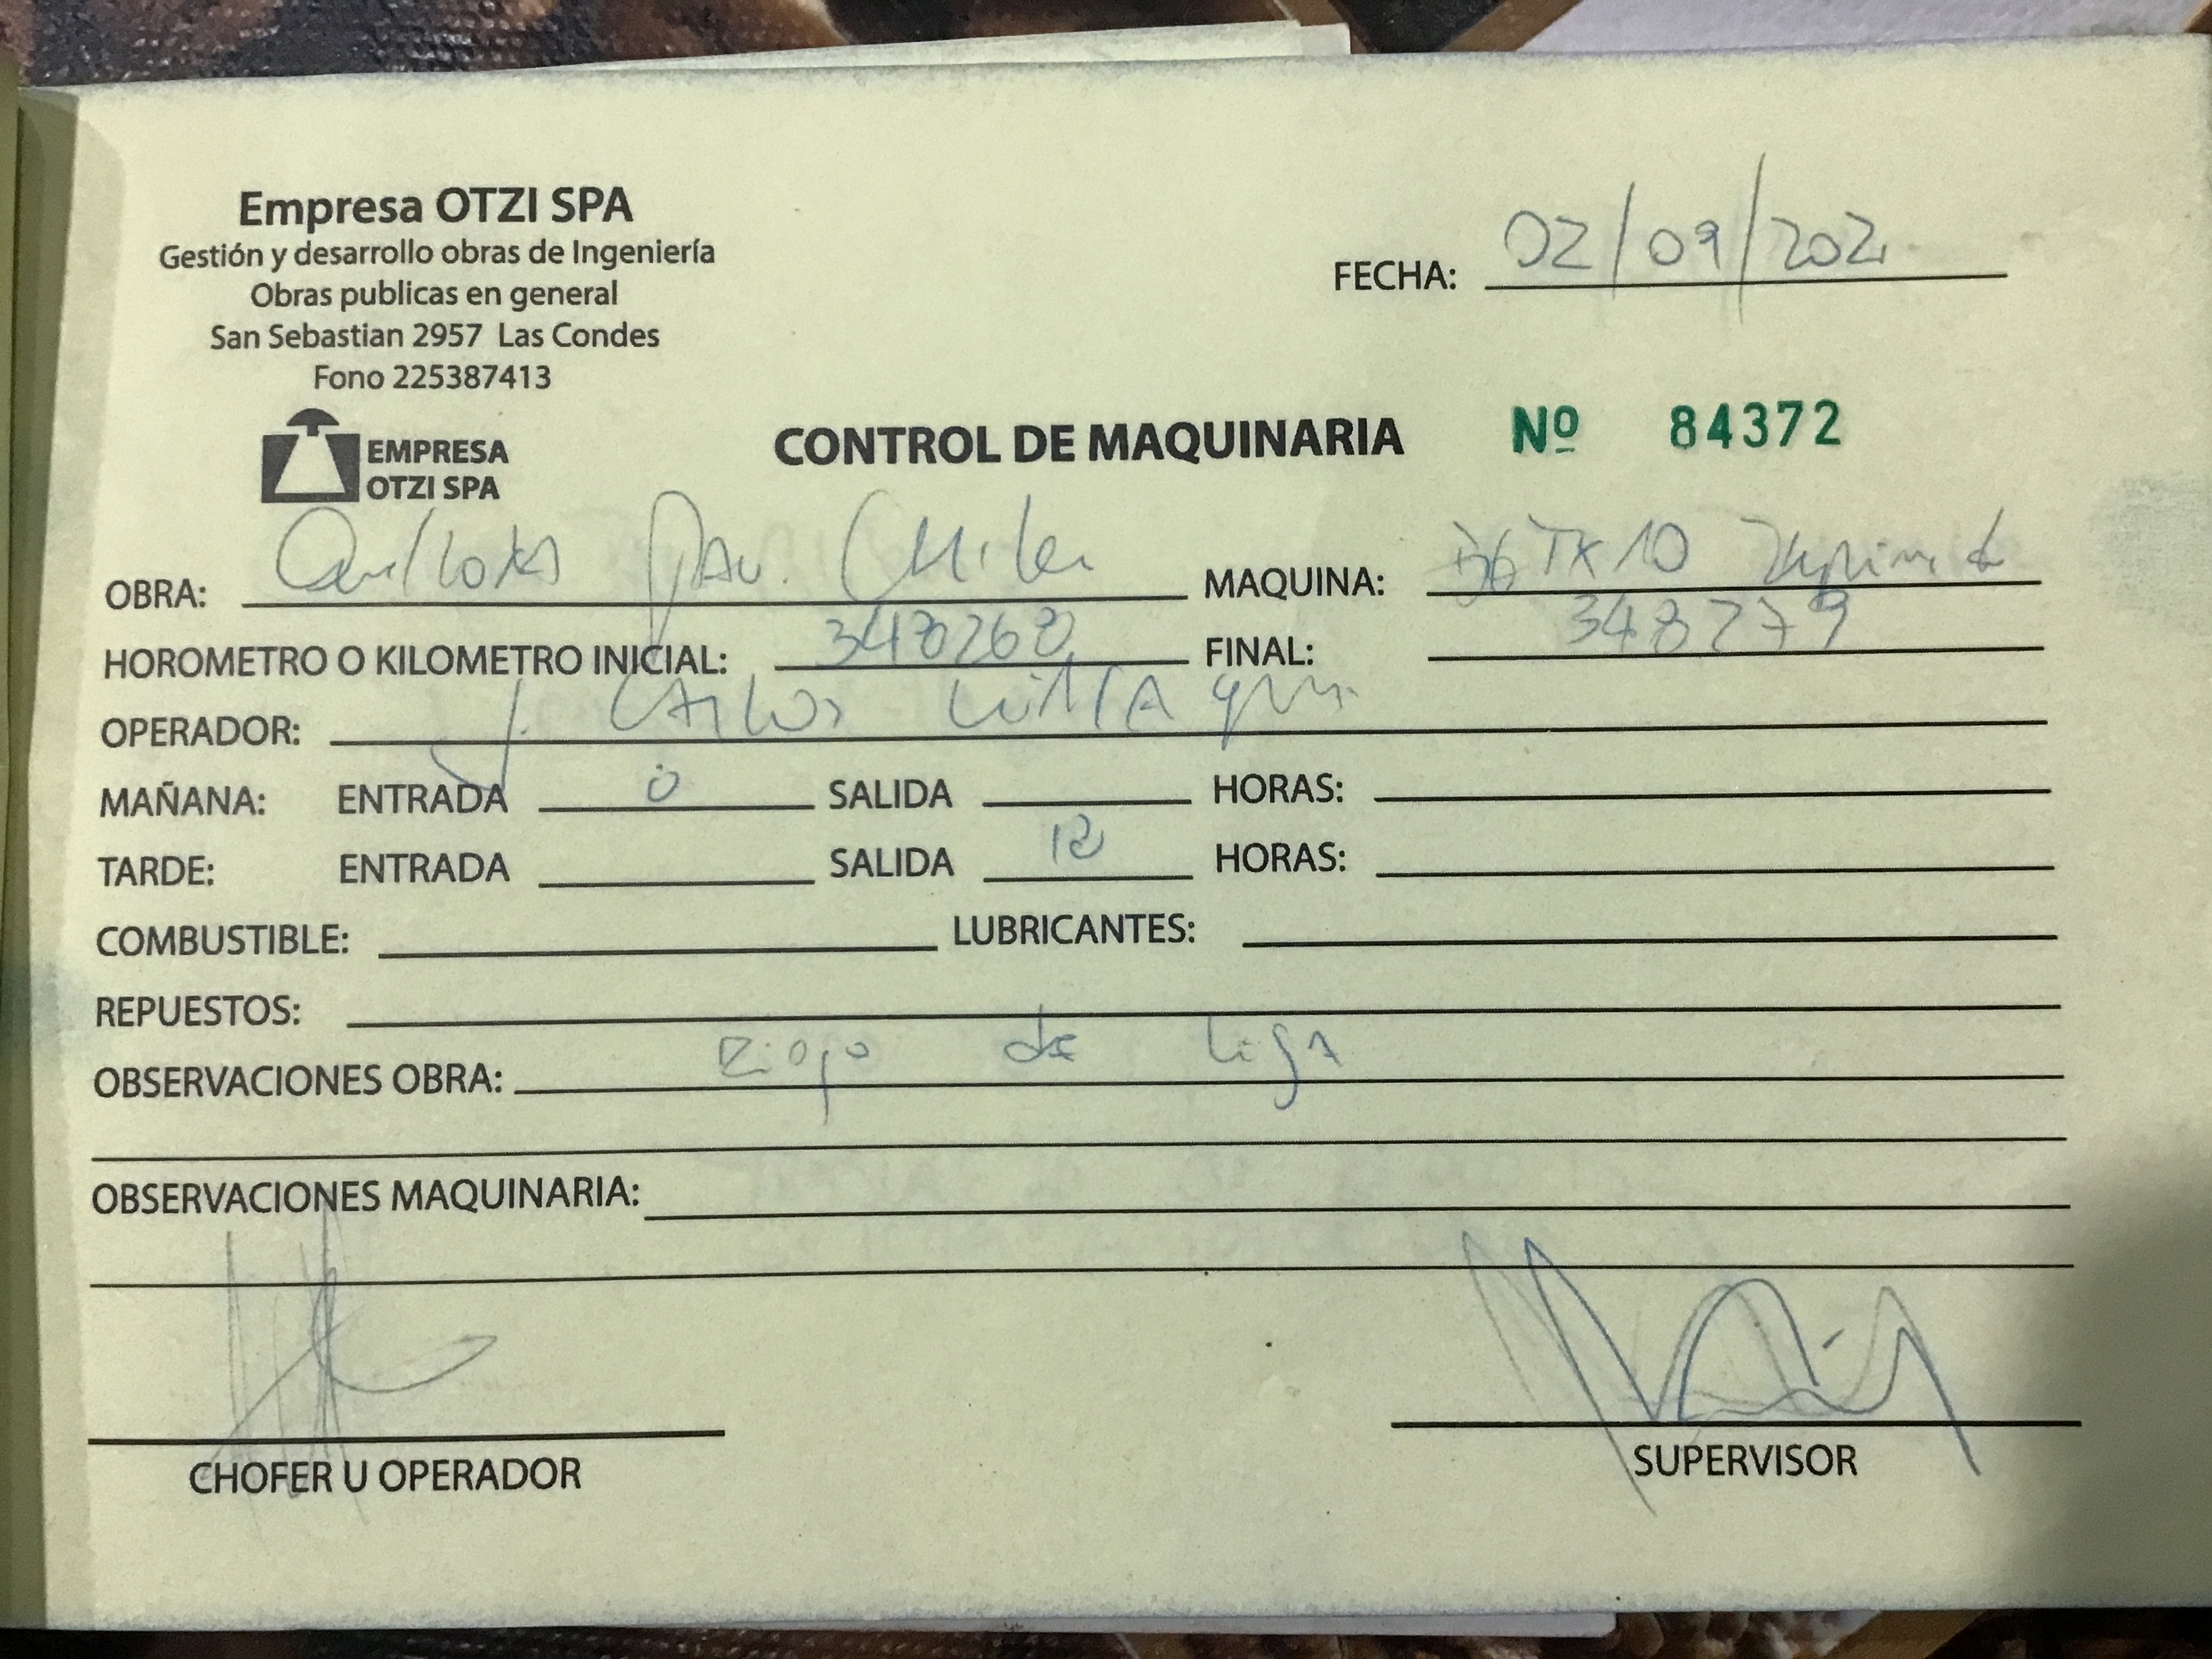 Empresa OTZI SPA
Gestión y desarrollo obras de Ingeniería
Obras publicas en general
San Sebastian 2957 Las Condes
Fono 225387413
EMPRESA
OTZI SPA
FECHA: 02/09/202
CONTROL DE MAQUINARIA Nº 84372
OBRA: Quillota MAQUINA:
HOROMETRO O KILOMETRO INICIAL: 348268 FINAL: 348279
OPERADOR: J. Carlos
MAÑANA: ENTRADA SALIDA HORAS:
TARDE: ENTRADA SALIDA 18 HORAS:
COMBUSTIBLE: LUBRICANTES:
REPUESTOS:
OBSERVACIONES OBRA: Riego de liga
OBSERVACIONES MAQUINARIA:
CHOFER U OPERADOR SUPERVISOR